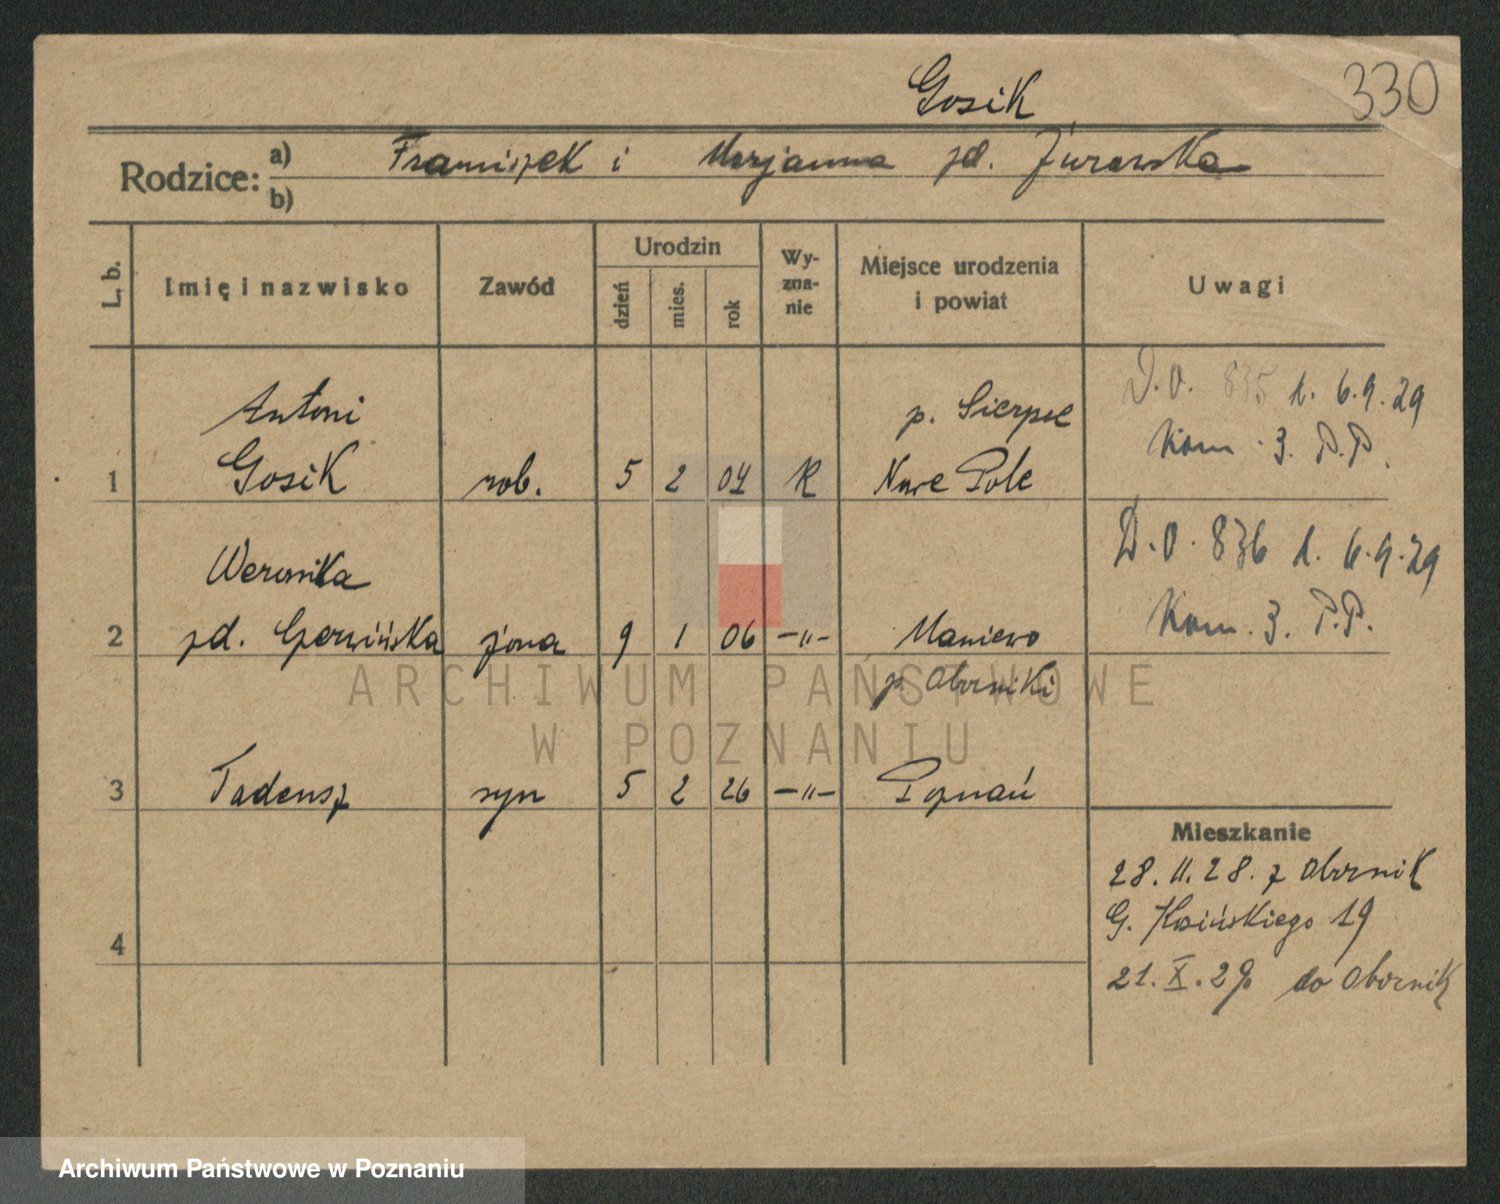 330
Gosik
Rodzice: a) Franciszek i Marjanna zd. Żurawska
b)
L. b. Imię i nazwisko Zawód Urodzin dzień mies. rok Wy-zna-nie Miejsce urodzenia i powiat Uwagi
Antoni p. Sierpc D.O. 835 d. 6.9.29
1 Gosik rob. 5 2 04 R Nowe Pole Kom. 3. P.P.
Weronika D.O. 836 d. 6.9.29
2 zd. Czerwińska żona 9 1 06 —"— Maniewo Kom. 3. P.P.
p. Oborniki
3 Tadeusz syn 5 2 26 —"— Poznań
Mieszkanie
28.II.28. z Obornik
G. Kosińskiego 19
4
21.X.29 do Obornik
ARCHIWUM PAŃSTWOWE
W POZNANIU
Archiwum Państwowe w Poznaniu